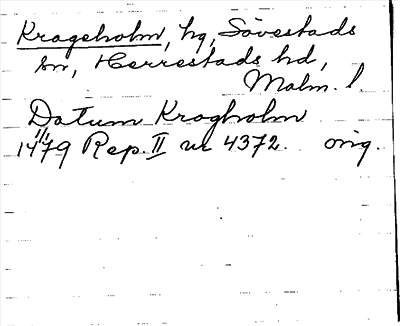 Krageholm, hg, Sövestads
sn, Herrestads hd,
Malm. l.
Datum Kragholm
1/1
1479 Rep. II nr 4372. orig.